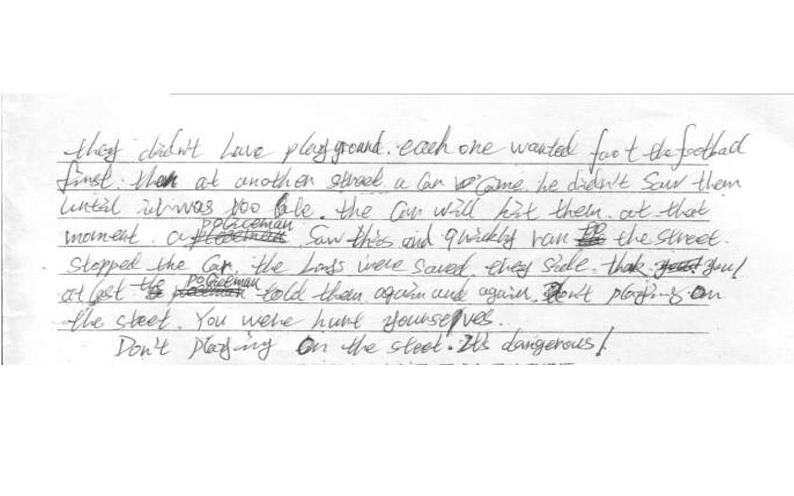 they didn't have playground. each one wanted foot the football
first. then at another street a car came. he didn't saw them
until it was too le. the car will hit them. at that
moment. a policeman saw this and quickly ran the street.
stopped the car. the boys were saved. they side. thak you!
at last the policeman told them again and again. Don't playing on
the steet. You were hunt yourselves.
Don't playing on the steet. It's dangerous!